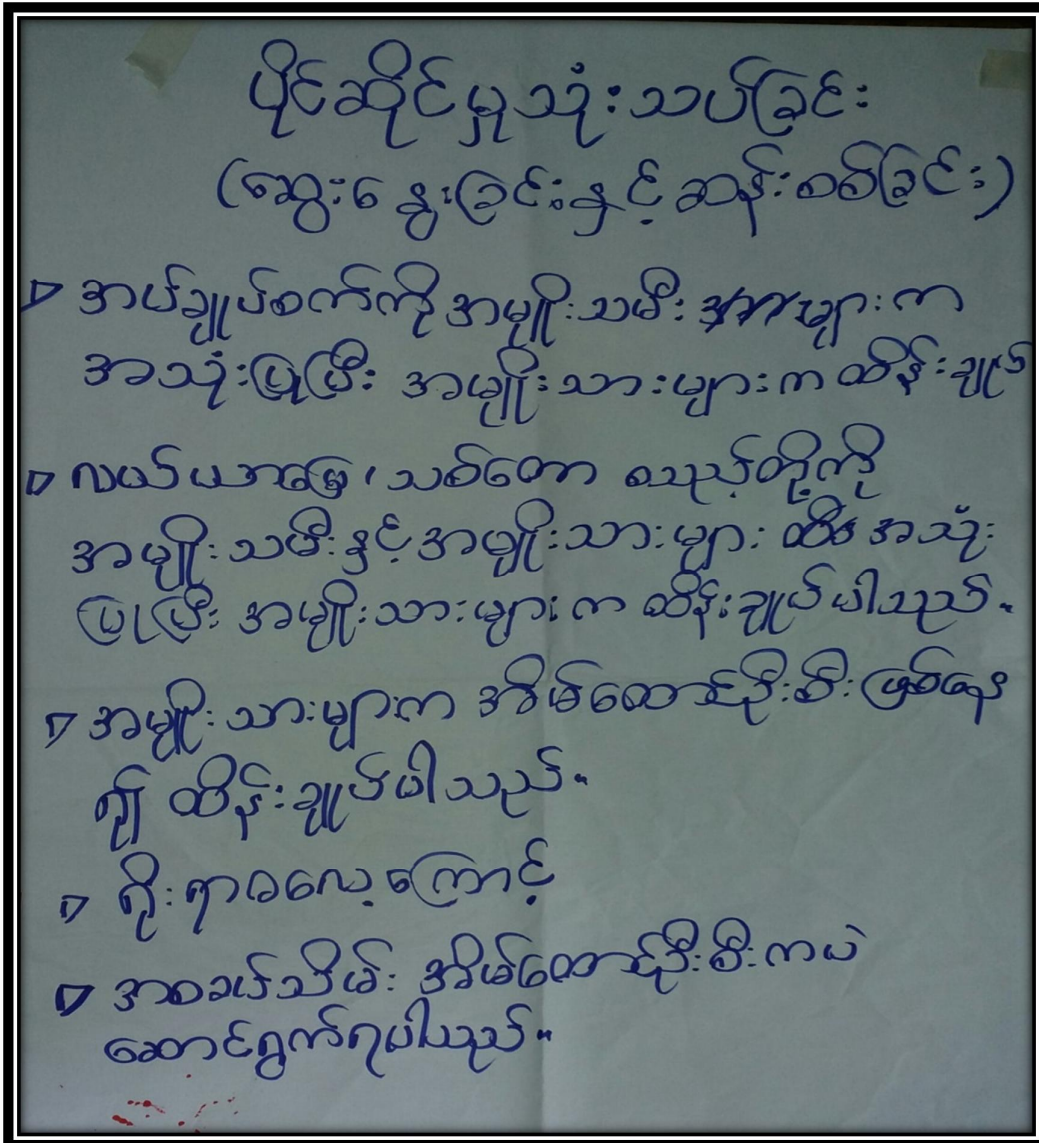 ပိုင်ဆိုင်မှုသုံးသပ်ခြင်း
(ဆွေးနွေးခြင်းနှင့် ဆန်းစစ်ခြင်း)
အပ်ချုပ်စက်ကို အမျိုးသမီး များက
အသုံးပြုပြီး အမျိုးသားများက ထိန်းချုပ်
လယ်ယာမြေ၊ သစ်တော စသည့်တို့ကို
အမျိုးသမီးနှင့် အမျိုးသားများ အသုံး
ပြုပြီး အမျိုးသားများက ထိန်းချုပ်ပါသည်။
အမျိုးသားများက အိမ်ထောင်ဦးစီး ဖြစ်နေ
၍ ထိန်းချုပ်ပါသည်။
ရိုးရာဓလေ့ကြောင့်
အစခပ်သိမ်း အိမ်ထောင်ဦးစီးကပဲ
ဆောင်ရွက်ရပါသည်။